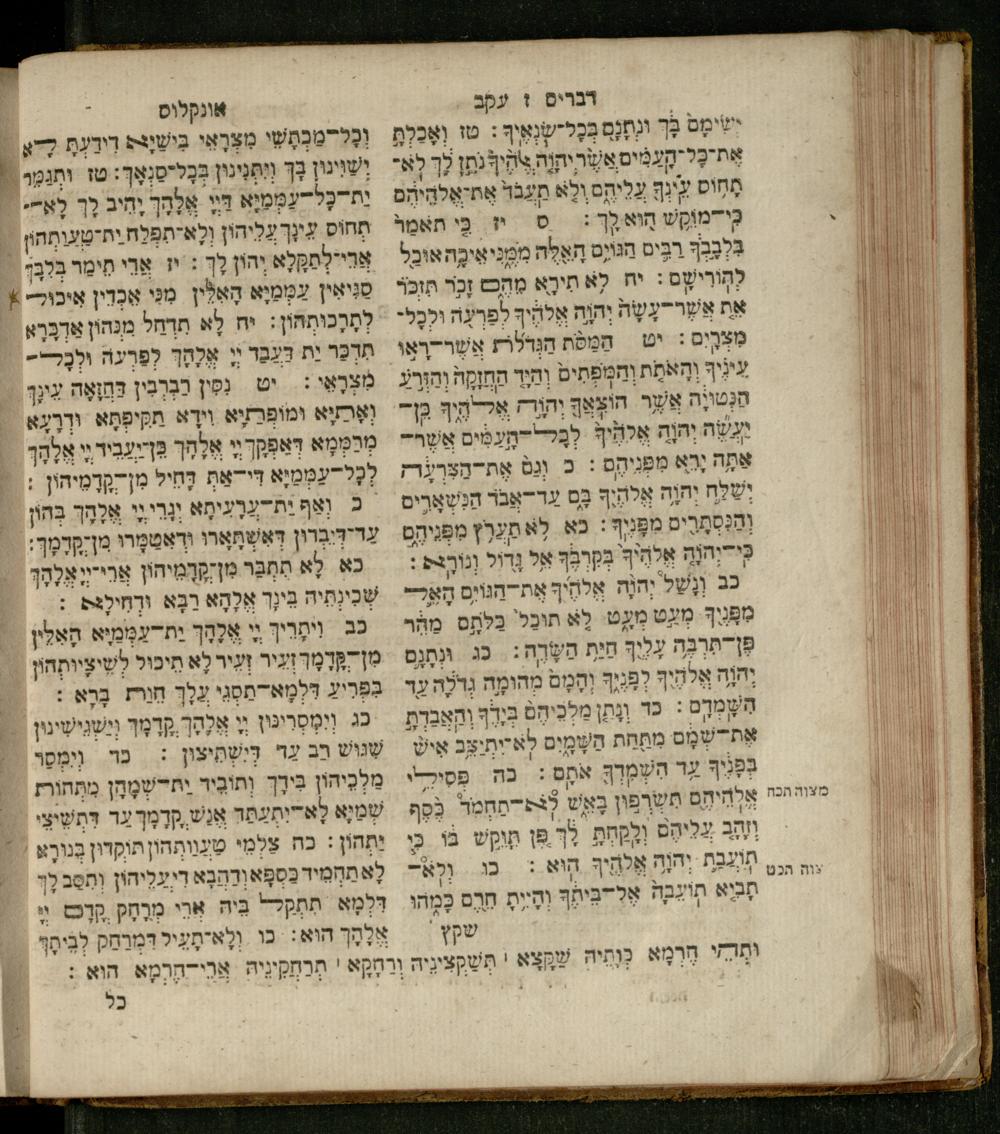 דברים ז עקב
יְשִׂימָם֙ בָּ֔ךְ וּנְתָנָ֖ם בְּכׇל־שֹׂנְאֶֽיךָ : טז וְאָכַלְתָּ֣
אֶת־כׇּל־הָֽעַמִּ֗ים אֲשֶׁ֨ר יְהֹוָ֤ה אֱלֹהֶ֙יךָ֙ נֹתֵ֣ן לָ֔ךְ לֹא־
תָחֹ֥ס עֵֽינְךָ֖ עֲלֵיהֶ֑ם וְלֹ֤א תַעֲבֹד֙ אֶת־אֱלֹ֣הֵיהֶ֔ם
כִּֽי־מוֹקֵ֥שׁ ה֖וּא לָֽךְ : ס יז כִּ֤י תֹאמַר֙
בִּלְבָ֣בְךָ֔ רַבִּ֛ים הַגּוֹיִ֥ם הָאֵ֖לֶּה מִמֶּ֑נִּי אֵיכָ֥ה אוּכַ֖ל
לְהוֹרִישָֽׁם : יח לֹ֥א תִירָ֖א מֵהֶ֑ם זָכֹ֣ר תִּזְכֹּ֗ר
אֵ֤ת אֲשֶׁר־עָשָׂה֙ יְהֹוָ֣ה אֱלֹהֶ֔יךָ לְפַרְעֹ֖ה וּלְכׇל־
מִצְרָֽיִם : יט הַמַּסֹּ֨ת הַגְּדֹלֹ֜ת אֲשֶׁר־רָא֣וּ
עֵינֶ֗יךָ וְהָאֹתֹ֤ת וְהַמֹּֽפְתִים֙ וְהַיָּ֤ד הַחֲזָקָה֙ וְהַזְּרֹ֣עַ
הַנְּטוּיָ֔ה אֲשֶׁ֥ר הוֹצִֽאֲךָ֖ יְהֹוָ֣ה אֱלֹהֶ֑יךָ כֵּֽן־
יַעֲשֶׂ֞ה יְהֹוָ֤ה אֱלֹהֶ֙יךָ֙ לְכׇל־הָ֣עַמִּ֔ים אֲשֶׁר־
אַתָּ֥ה יָרֵ֖א מִפְּנֵיהֶֽם : כ וְגַם֙ אֶת־הַצִּרְעָ֔ה
יְשַׁלַּ֛ח יְהֹוָ֥ה אֱלֹהֶ֖יךָ בָּ֑ם עַד־אֲבֹ֗ד הַנִּשְׁאָרִ֛ים
וְהַנִּסְתָּרִ֖ים מִפָּנֶֽיךָ : כא לֹ֥א תַעֲרֹ֖ץ מִפְּנֵיהֶ֑ם
כִּֽי־יְהֹוָ֤ה אֱלֹהֶ֙יךָ֙ בְּקִרְבֶּ֔ךָ אֵ֥ל גָּד֖וֹל וְנוֹרָֽא :
כב וְנָשַׁל֩ יְהֹוָ֨ה אֱלֹהֶ֜יךָ אֶת־הַגּוֹיִ֥ם הָאֵ֛ל
מִפָּנֶ֖יךָ מְעַ֣ט מְעָ֑ט לֹ֤א תוּכַל֙ כַּלֹּתָ֣ם מַהֵ֔ר
פֶּן־תִּרְבֶּ֥ה עָלֶ֖יךָ חַיַּ֥ת הַשָּׂדֶֽה : כג וּנְתָנָ֛ם
יְהֹוָ֥ה אֱלֹהֶ֖יךָ לְפָנֶ֑יךָ וְהָמָם֙ מְהוּמָ֣ה גְדֹלָ֔ה עַ֖ד
הִשָּׁמְדָֽם : כד וְנָתַ֤ן מַלְכֵיהֶם֙ בְּיָדֶ֔ךָ וְהַאֲבַדְתָּ֣
אֶת־שְׁמָ֔ם מִתַּ֖חַת הַשָּׁמָ֑יִם לֹֽא־יִתְיַצֵּ֥ב אִישׁ֙
בְּפָנֶ֔יךָ עַ֥ד הִשְׁמִֽדְךָ֖ אֹתָֽם : כה פְּסִילֵ֥י
אֱלֹהֵיהֶ֖ם תִּשְׂרְפ֣וּן בָּאֵ֑שׁ לֹֽא־תַחְמֹד֩ כֶּ֨סֶף
מצוה תכח
וְזָהָ֤ב עֲלֵיהֶם֙ וְלָקַחְתָּ֣ לָ֔ךְ פֶּ֚ן תִּוָּקֵ֣שׁ בּ֔וֹ כִּ֧י
תוֹעֲבַ֛ת יְהֹוָ֥ה אֱלֹהֶ֖יךָ הֽוּא : כו וְלֹא־
צוה תכט
תָבִ֤יא תוֹעֵבָה֙ אֶל־בֵּיתֶ֔ךָ וְהָיִ֥יתָ חֵ֖רֶם כָּמֹ֑הוּ
שקץ
אונקלוס
וְכָל־מַכְתָּשֵׁי מִצְרָאֵי בִּישַׁיָּא דִּידַעְתָּ לָא
יְשַׁוִּינוּן בָּךְ וְיִתְּנִינוּן בְּכָל־סַנְאָךְ : טז וּתְגַמֵּר
יַת־כָּל־עַמְמַיָּא דַּיְיָ אֱלָהָךְ יָהֵיב לָךְ לָא־
תְחוֹס עֵינָךְ עֲלֵיהוֹן וְלָא־תִפְלַח יַת־טָעֲוָתְהוֹן
אֲרֵי־לְתַקְלָא יְהוֹן לָךְ : יז אֲרֵי תֵימַר בְּלִבָּךְ
סַגִּיאִין עַמְמַיָּא הָאִלֵּין מִנִּי אֶכְדֵין אִיכּוּל
לְתָרָכוּתְהוֹן : יח לָא תִדְחַל מִנְּהוֹן אַדְכָּרָא
תִדְכַּר יַת דַּעֲבַד יְיָ אֱלָהָךְ לְפַרְעֹה וּלְכָל־
מִצְרָאֵי : יט נִסִּין רַבְרְבִין דַּחֲזָאָה עֵינָךְ
וְאָתַיָּא וּמוֹפְתַיָּא וִידָא תַקִּיפְתָּא וּדְרָעָא
מְרַמְּמָא דְּאַפְּקָךְ יְיָ אֱלָהָךְ כֵּן־יַעְבֵּיד יְיָ אֱלָהָךְ
לְכָל־עַמְמַיָּא דִּי־אַתְּ דָּחֵיל מִן־קֳדָמֵיהוֹן :
כ וְאַף יַת־עֲרָעִיתָא יְגָרֵי יְיָ אֱלָהָךְ בְּהוֹן
עַד־דְּיֵבְדוּן דְּאִשְׁתָּאָרוּ וּדְאִטַּמָּרוּ מִן־קֳדָמָךְ :
כא לָא תִתְּבַר מִן־קֳדָמֵיהוֹן אֲרֵי־יְיָ אֱלָהָךְ
שְׁכִינְתֵּיהּ בֵּינָךְ אֱלָהָא רַבָּא וּדְחִילָא :
כב וִיתָרֵיךְ יְיָ אֱלָהָךְ יַת־עַמְמַיָּא הָאִלֵּין
מִן־קֳדָמָךְ זְעֵיר זְעֵיר לָא תֵיכּוּל לְשֵׁיצָיוּתְהוֹן
בִּפְרִיעַ דִּלְמָא־תַסְגֵּי עֲלָךְ חֵוַת בָּרָא :
כג וְיִמְסְרִינּוּן יְיָ אֱלָהָךְ קֳדָמָךְ וִישַׁגִּישִׁינוּן
שִׁגּוּשׁ רַב עַד דְּיִשְׁתֵּיצוּן : כד וְיִמְסַר
מַלְכֵיהוֹן בִּידָךְ וְתוֹבֵיד יַת־שְׁמָהָן מִתְּחוֹת
שְׁמַיָּא לָא־יִתְעַתַּד אֱנָשׁ קֳדָמָךְ עַד דִּתְשֵׁיצֵי
יָתְהוֹן : כה צַלְמֵי טָעֲוָתְהוֹן תּוֹקְדוּן בְּנוּרָא
לָא תַחְמֵיד כַּסְפָּא וְדַהֲבָא דִּי עֲלֵיהוֹן וְתִסַּב לָךְ
דִּלְמָא תִתָּקֵל בֵּיהּ אֲרֵי מְרָחָק קֳדָם יְיָ
אֱלָהָךְ הוּא : כו וְלָא־תָעֵיל דִּמְרָחַק לְבֵיתָךְ
וּתְהֵי חֶרְמָא כְּוָתֵיהּ שַׁקָּצָא ׀ תְּשַׁקְּצִינֵיהּ וְרַחָקָא ׀ תְּרַחֲקִינֵיהּ אֲרֵי־חֶרְמָא הוּא :
כל